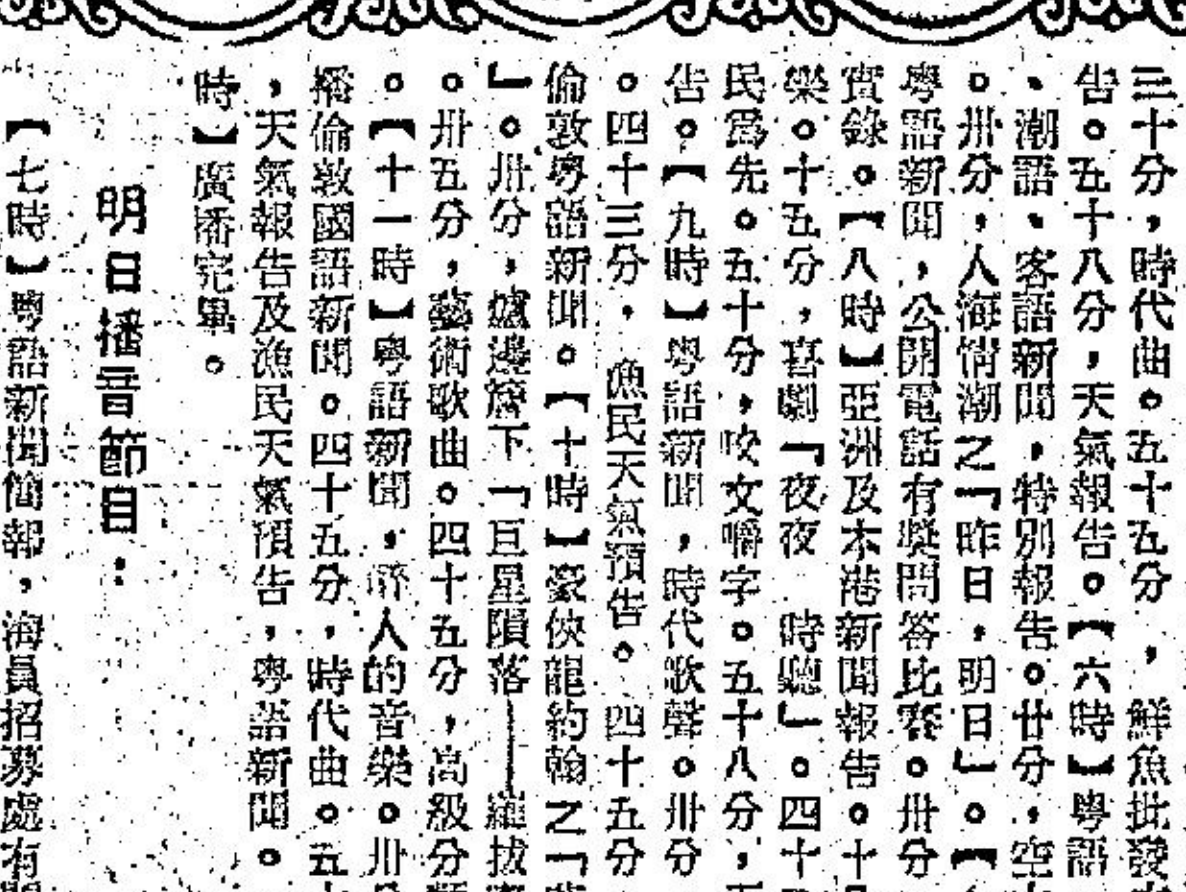 三十分，時代曲。五十五分，鮮魚批發
告。五十八分，天氣報告。【六時】粵語
、潮語、客語新聞，特別報告。廿分，空
。卅分，人海情潮之「昨日，明日」。【
粵語新聞，公開電話有獎問答比賽。卅分
實錄。【八時】亞洲及本港新聞報告。十
樂。十五分，喜劇「夜夜 時聽」。四十
民爲先。五十分，咬文嚼字。五十八分，
告。【九時】粵語新聞，時代歌聲。卅分
。四十三分，漁民天氣預告。四十五分
倫敦粵語新聞。【十時】豪俠龍約翰之「
」。卅分，爐邊簷下「巨星隕落——羅拔
。卅五分，藝術歌曲。四十五分，高級分
。【十一時】粵語新聞，醉人的音樂。卅
播倫敦國語新聞。四十五分，時代曲。五
，天氣報告及漁民天氣預告，粵語新聞。
時】廣播完畢。
明日播音節目：
【七時】粵語新聞簡報，海員招募處有